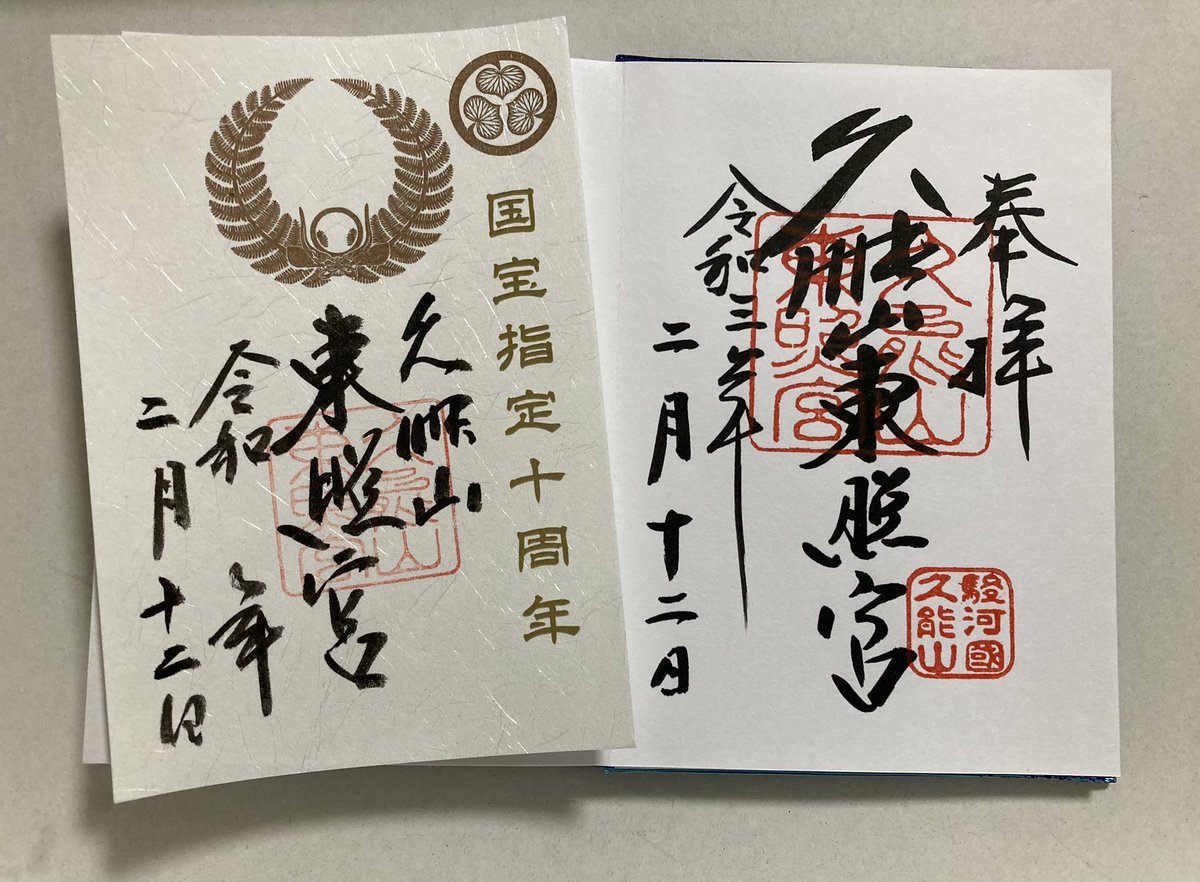 奉拝
久能山東照宮
令和三年
二月十二日
久能山
東照宮
駿河國
久能山
国宝指定十周年
久能山
東照宮
令和 年
二月十二日
久能山
東照宮